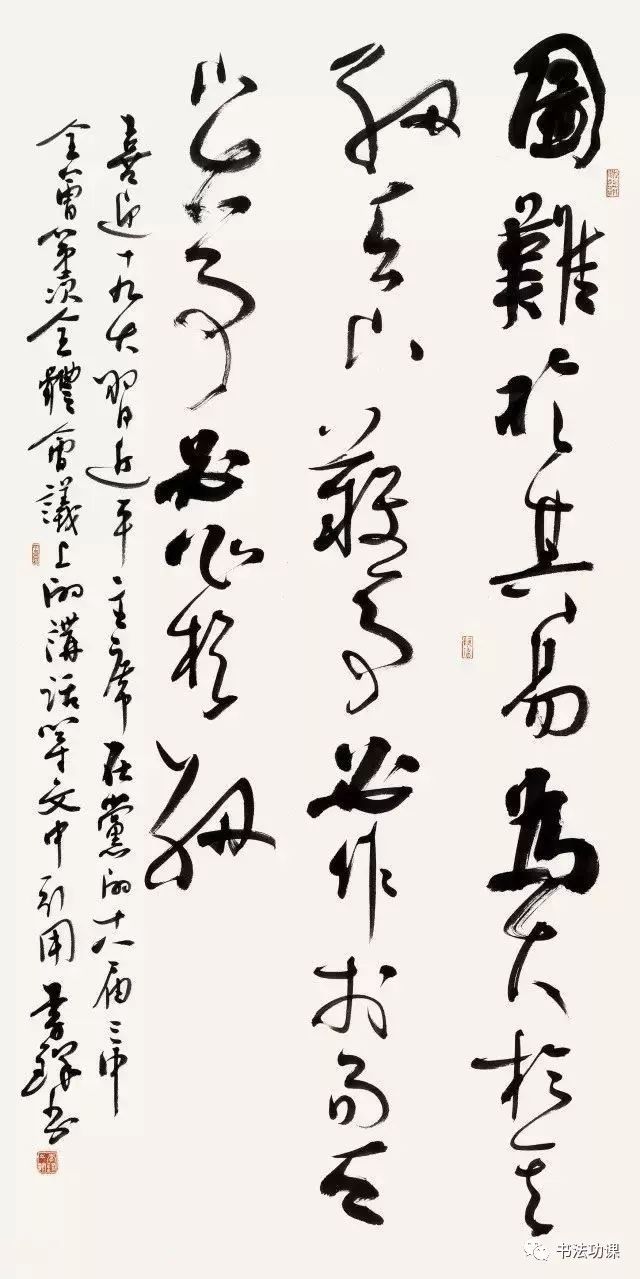 圖難於其易為大於其
細天下難事必作於易天
下大事必作於細
喜迎十九大習近平主席在黨的十八屆三中
全會第次全體會議上的講話等文中引用
书法功课